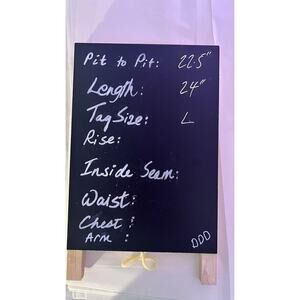 Pit to Pit: 22.5"
Length: 24"
Tag Size: L
Rise:
Inside Seam:
Waist:
Chest:
Arm:
DDD